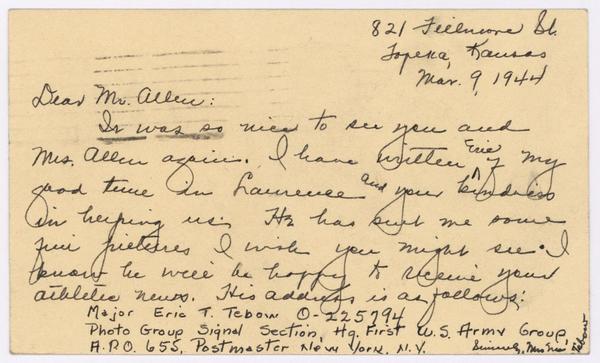 821 Fillmore St.
Topeka, Kansas
Mar. 9, 1944
Dear Mr. Allen:
It was so nice to see you and
Mrs. Allen again. I have written Eric of my
good time in Lawrence and your kindness
in helping us. He has sent me some
fine pictures I wish you might see. I
know he will be happy to receive your
athletic news. His address is as follows:
Major Eric T. Tebow O-225794
Photo Group Signal Section, Hq. First U.S. Army Group
A.P.O. 655, Postmaster New York, N.Y.
Sincerely, Mrs Eric Tebow